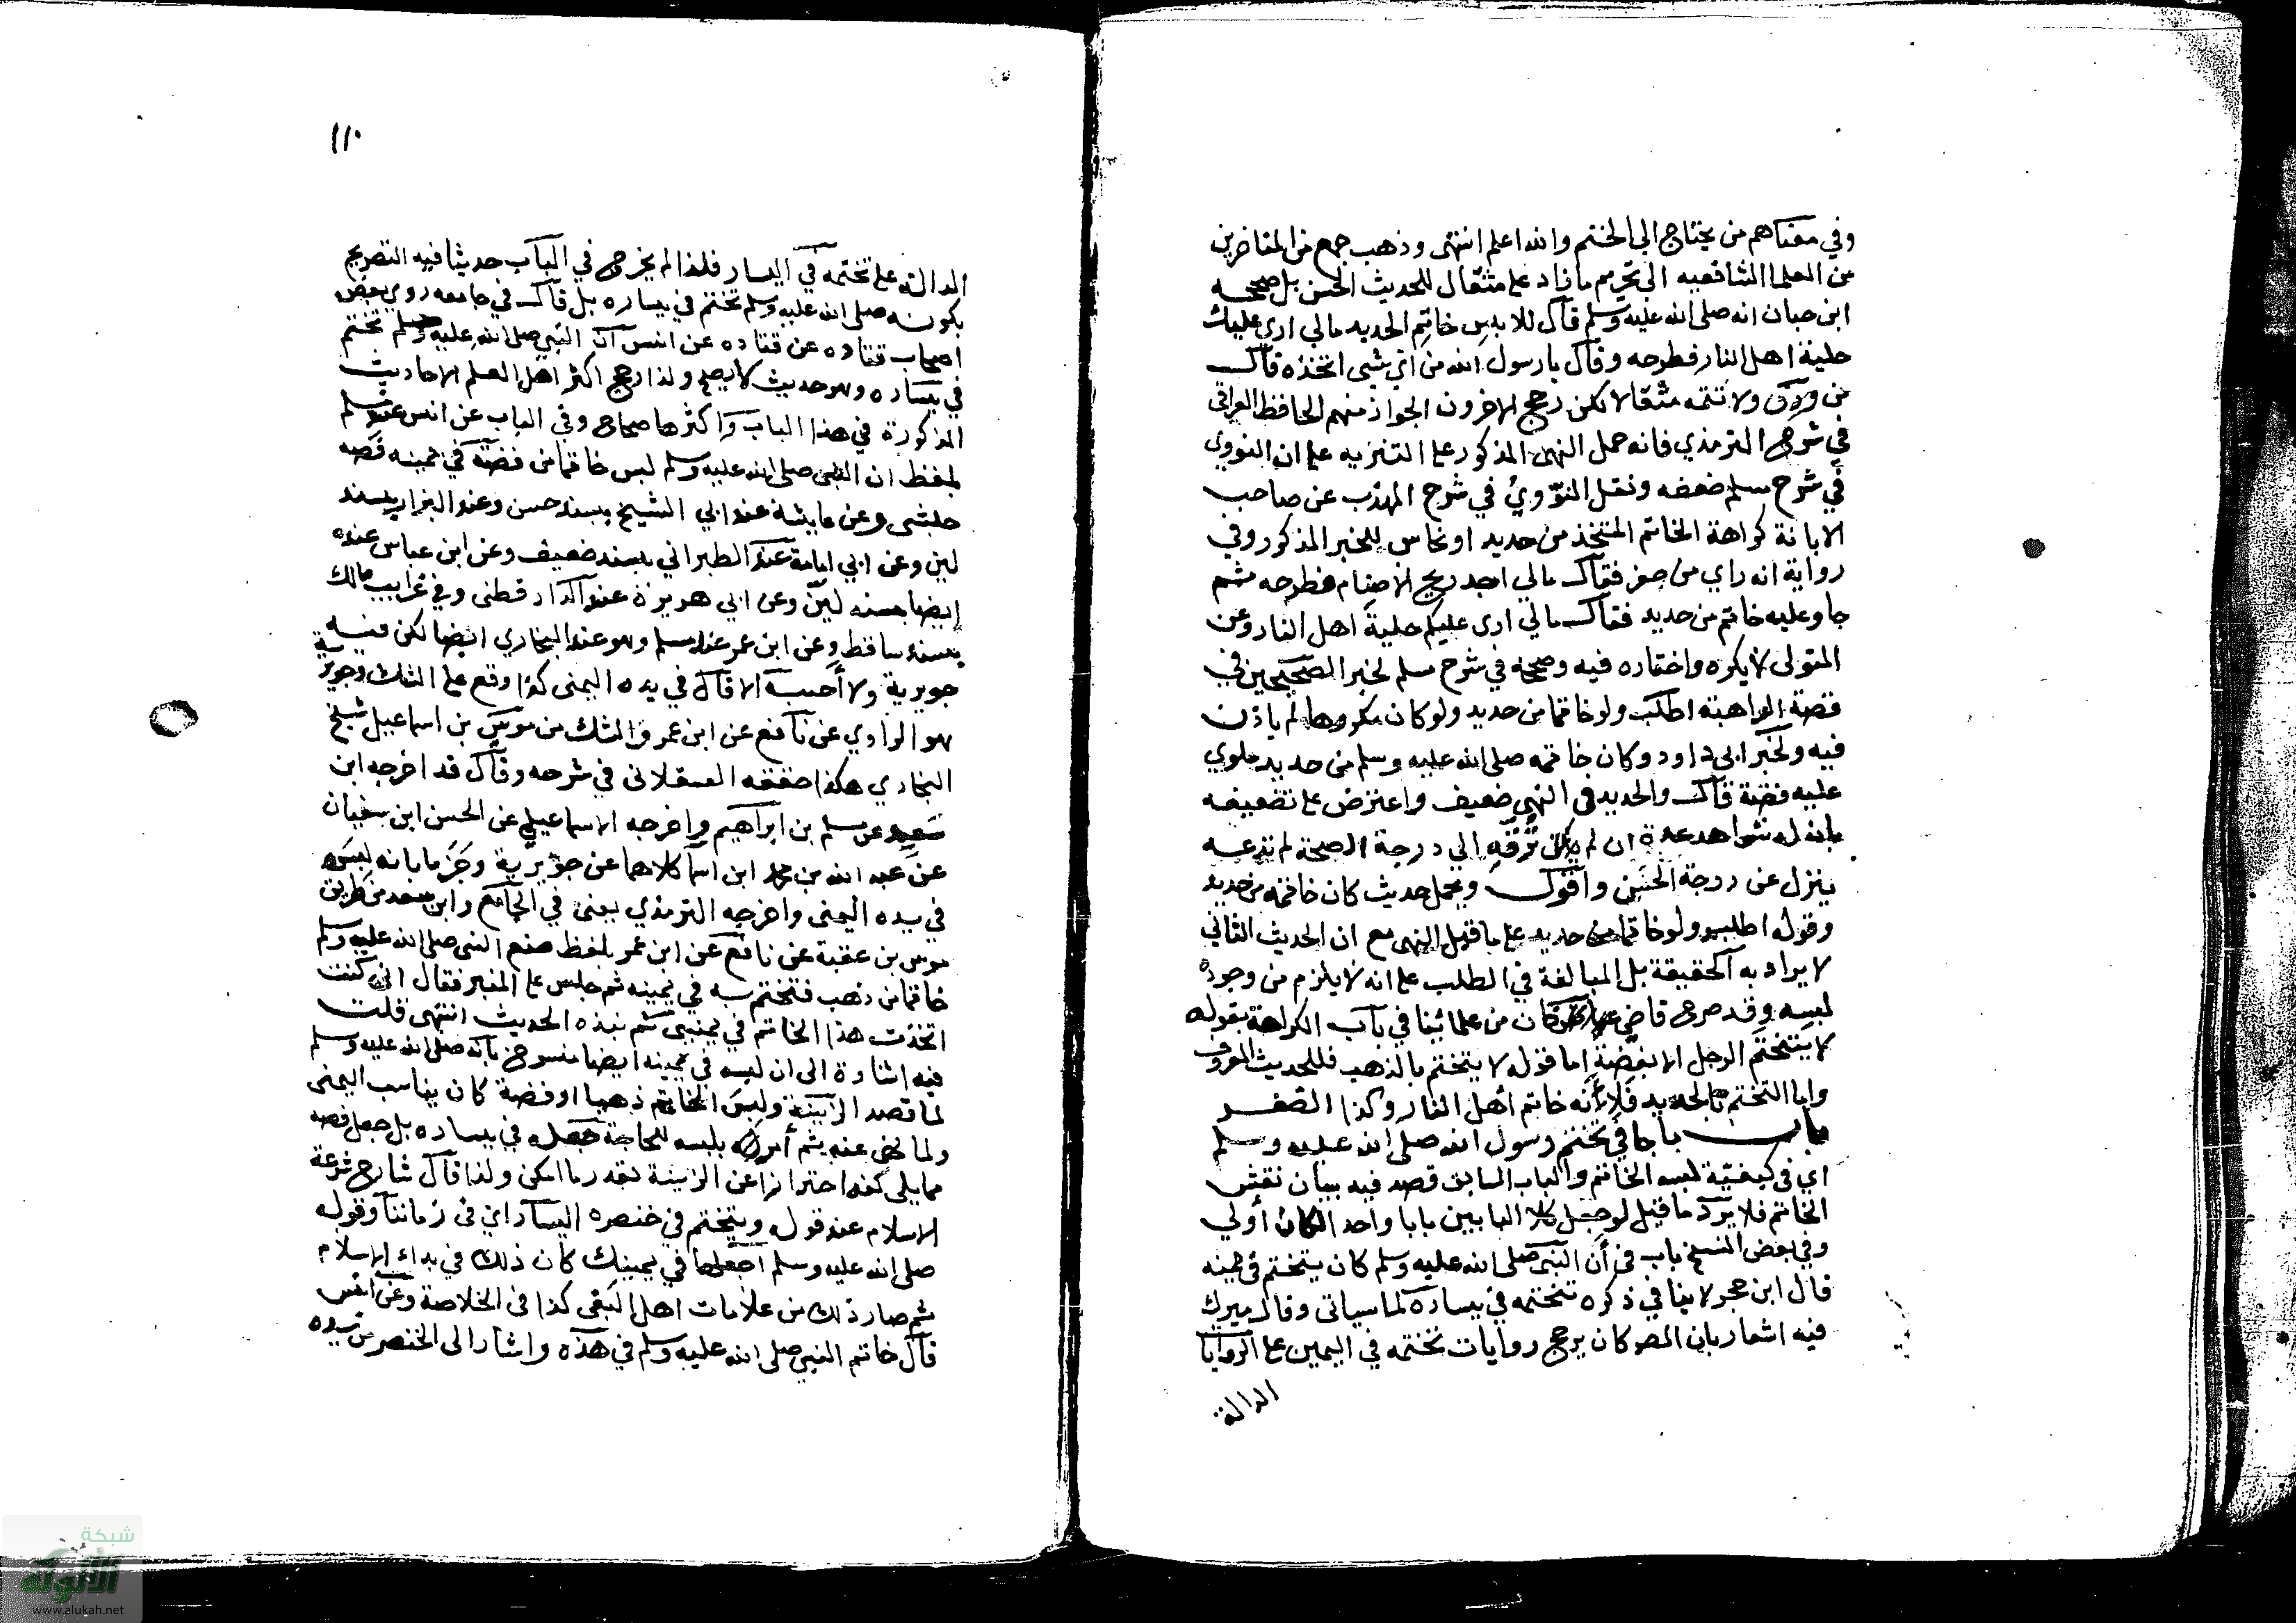 وفي معناهم من يحتاج الى الختم والله اعلم انتهى وذهب جمع من المتاخرين
من العلما الشافعيه الى تحريم ما زاد على مثقال للحديث الحسن بل صححه
ابن حبان انه صلى الله عليه وسلم قال للابس خاتم الحديد مالي ارى عليك
حلية اهل النار فطرحه وقال يا رسول الله من اي شيى اتخذه قال
من ورق ولا تتمه مثقالا لكن رجح الاخرون الجواز منهم الحافظ العراقي
في شرح الترمذي فانه حمل النهى المذكور على التنزيه على ان النووي
في شرح مسلم ضعفه ونقل النووي في شرح المهذب عن صاحب
الابانة كراهة الخاتم المتخذ من حديد او نحاس للخبر المذكور وفي
رواية انه راي من صفر فقال مالي اجد ريح الاصنام فطرحه ثم
جا وعليه خاتم من حديد فقال مالي ارى عليكم حلية اهل النار وعن
المتولى لا يكره واختاره فيه وصححه في شرح مسلم لخبر الصحيحين في
قصة الواهبة اطلب ولو خاتما من حديد ولو كان مكروها لم ياذن
فيه ولخبر ابى داود وكان خاتمه صلى الله عليه وسلم من حديد ملوي
عليه فضة قال والحديد في النهي ضعيف واعترض على تضعيفه
بانه له شواهد عدة ان لم ترقه الي درجة الصحة لم تدعه
ينزل عن درجة الحسن واقول ويحمل حديث كان خاتمه من حديد
وقوله اطلب ولو خاتما من حديد على ما قبل النهى مع ان الحديث الثاني
لا يراد به الحقيقة بل المبالغة في الطلب على انه لا يلزم من وجوده
لبسه وقد صرح قاضي خان من علمائنا في باب الكراهة بقوله
لا يتختم الرجل الا بفضة اما قوله لا يتختم بالذهب فللحديث المعروف
واما التختم بالحديد فلانه خاتم اهل النار وكذا الصفر
باب ما جا في تختم رسول الله صلى الله عليه وسلم
اي في كيفية لبسه الخاتم والباب السابق قصد فيه بيان نقش
الخاتم فلا يرد ما قيل لو جعل كلا البابين بابا واحد الكان أولي
وفي بعض النسخ باب في أن النبي صلى الله عليه وسلم كان يتختم في يمينه
قال ابن حجر لا ينافي ذكره تختمه في يساره لما سياتي وقال ميرك
فيه اشعار بان المص كان يرجح روايات تختمه في اليمين على الروايات
الدالة
١١٠
الدالة على تختمه في اليسار فلذا لم يخرج في الباب حديثا فيه التصريح
بكونه صلى الله عليه وسلم تختم في يساره بل قال في جامعه روي بعض
اصحاب قتاده عن قتاده عن انس ان النبي صلى الله عليه وسلم تختم
في يساره وهو حديث لا يصح ولذا رجح اكثر اهل العلم الاحاديث
المذكورة في هذا الباب واكثرها صحاح وفي الباب عن انس عند مسلم
بلفظ ان النبي صلى الله عليه وسلم لبس خاتما من فضة في يمينه فصه
حبشي وعن عايشة عند ابي الشيخ بسند حسن وعند البزار بسند
لين وعن ابي امامة عند الطبراني بسند ضعيف وعن ابن عباس عنده
ايضا بسند لين وعن ابي هريرة عند الدارقطنى وفي غرايب مالك
بسند ساقط وعن ابن عمر عند مسلم وهو عند البخاري ايضا لكن فيه
جويرية ولا أحسبه الا قال في يده اليمنى كذا وقع على الشك وجويرية
هو الراوي عن نافع عن ابن عمر والشك من موسى بن اسماعيل شيخ
البخاري هكذا حققه العسقلاني في شرحه وقال قد اخرجه ابن
سعيد عن مسلم بن ابراهيم واخرجه الاسماعيلي عن الحسن ابن سفيان
عن عبد الله بن محمد ابن اسما كلاهما عن جويرية وجزما بانه لبسه
في يده اليمنى واخرجه الترمذي يعنى في الجامع وابن سعد من طريق
موسى بن عقبة عن نافع عن ابن عمر بلفظ صنع النبى صلى الله عليه وسلم
خاتما من ذهب فتختم به في يمينه ثم جلس على المنبر فقال انى كنت
اتخذت هذا الخاتم في يمينى ثم نبذه الحديث انتهى قلت
فيه اشارة الى ان لبسه في يمينه ايضا منسوخ بانه صلى الله عليه وسلم
لما قصد الزينة ولبس الخاتم ذهبا او فضة كان يناسب اليمنى
ولما نهي عنه ثم أمر بلبسه للحاجة جعله في يساره بل جعل فصه
مما يلي كفه احترازا عن الزينة بقدر ما امكن ولذا قال شارح شرعة
الاسلام عند قوله ويتختم في خنصره اليسار اي في زماننا وقوله
صلى الله عليه وسلم اجعلها في يمينك كان ذلك في بداء الاسلام
ثم صار ذلك من علامات اهل البغى كذا في الخلاصة وعن انس
قال خاتم النبي صلى الله عليه وسلم في هذه واشار الى الخنصر من يده
شبكة
الألوكة
www.alukah.net